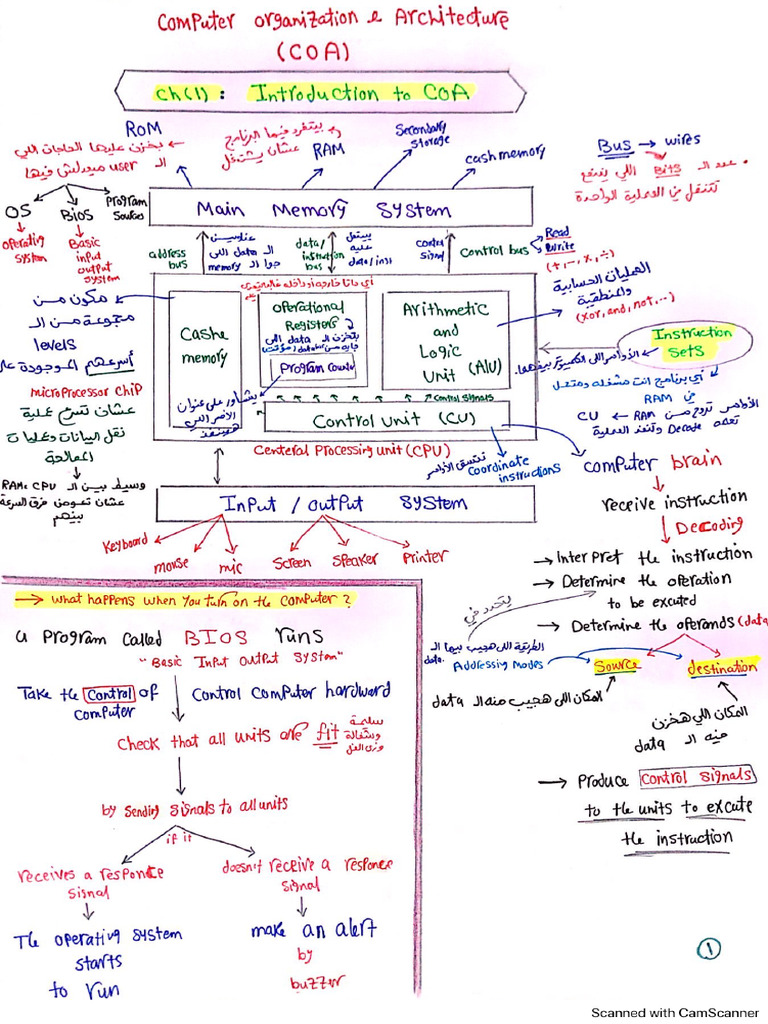 Computer Organization & Architecture
(COA)
Ch(1): Introduction to COA
ROM
بيخزن عليها الحاجات اللي
الـ user ميدلش فيها
OS
BIOS
Program
Sources
Operating
System
Basic
input
output
system
بيتفرد فيها البرنامج
عشان يشتغل
RAM
Secondary
Storage
cash memory
Bus → wires
عدد الـ Bits اللي ينفع
تتنقل في العملية الواحدة
Main Memory System
address
bus
عناوين
الـ data اللي
جوا الـ memory
data/
instruction
bus
بيتنقل
عليه
data/inst
control
signal
Control bus
Read
Write
Cashe
memory
Operational
Registers
Program counter
Arithmetic
and
Logic
Unit (ALU)
(+, -, ×, ÷)
العمليات الحسابية
والمنطقية
(xor, and, not, ...)
مكون من
مجموعة من الـ
levels
أسرعهم الموجودة على
microprocessor chip
عشان تسرع عملية
نقل البيانات وعمليات
المعالجة
وسيط بين الـ CPU و RAM
عشان تعوض فرق السرعة
بينهم
بيشاور على عنوان
الأمر اللي
هيتنفذ
Control signals
Control Unit (CU)
Centeral Processing unit (CPU)
تنسيق الأوامر
Coordinate
instructions
Instruction
Sets
الأوامر اللي الكمبيوتر بيفهمها
أي برنامج انت مشغله ومتحمل
في RAM
الأوامر تروح من RAM ← CU
تعمله Decode وتنفذ العملية
Computer brain
receive instruction
Decoding
→ Interpret the instruction
→ Determine the operation
to be excuted
→ Determine the operands (data
بتحدد في
الطريقة اللي هجيب بيها الـ
data.
Addressing Modes
Source
destination
المكان اللي هجيب منه الـ data
المكان اللي هخزن
فيه الـ data
→ Produce control signals
to the units to excute
the instruction
Input / output System
Keyboard
mouse
mic
Screen
Speaker
Printer
→ What happens when you turn on the computer?
a Program called BIOS runs
"Basic Input Output System"
Take the control of
computer
control computer hardward
Check that all units are fit
سليمة
وشغالة
وزي الفل
by sending signals to all units
if it
receives a response
signal
doesn't receive a response
signal
The operating system
starts
to run
make an alert
by
buzzer
١
Scanned with CamScanner